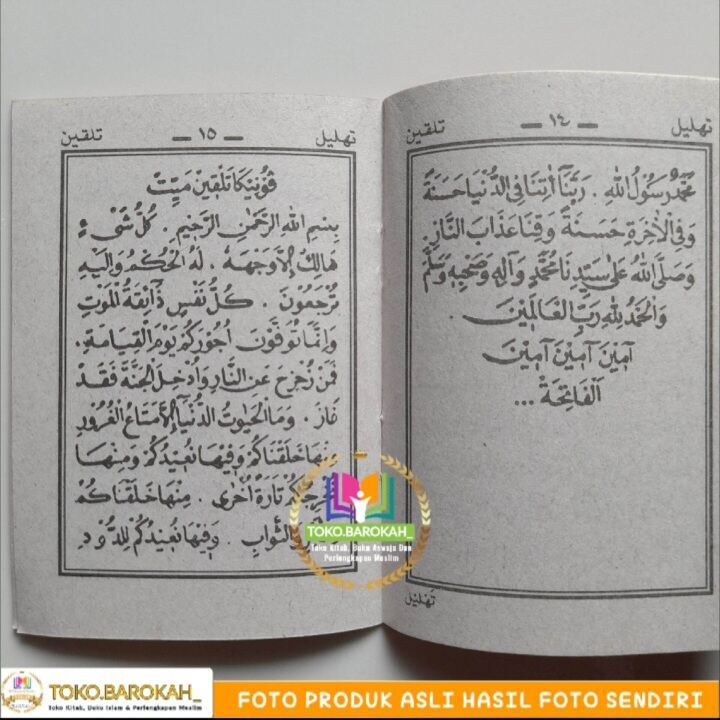 تهليل — ١٤ — تلقين
مُحَمَّدٌ رَسُوْلُ اللهِ . رَبَّنَا أٰتِنَا فِى الدُّنْيَا حَسَنَةً
وَفِى الْأٰخِرَةِ حَسَنَةً وَقِنَا عَذَابَ النَّارِ
وَصَلَّى اللهُ عَلَى سَيِّدِنَا مُحَمَّدٍ وَآلِهٖ وَصَحْبِهٖ وَسَلَّمَ
وَالْحَمْدُ لِلّٰهِ رَبِّ الْعَالَمِيْنَ .
آمِيْنَ آمِيْنَ آمِيْنَ
اَلْفَاتِحَةُ ...
تهليل
تهليل — ١٥ — تلقين
ڤُوْنِيْكَا تَلْقِيْنْ مَيِّتْ
بِسْمِ اللهِ الرَّحْمٰنِ الرَّحِيْمِ . كُلُّ شَيْءٍ
هَالِكٌ إِلَّا وَجْهَهٗ . لَهُ الْحُكْمُ وَإِلَيْهِ
تُرْجَعُوْنَ . كُلُّ نَفْسٍ ذَآئِقَةُ الْمَوْتِ
وَإِنَّمَا تُوَفَّوْنَ أُجُوْرَكُمْ يَوْمَ الْقِيَامَةِ .
فَمَنْ زُحْزِحَ عَنِ النَّارِ وَأُدْخِلَ الْجَنَّةَ فَقَدْ
فَازَ . وَمَا الْحَيٰوةُ الدُّنْيَآ إِلَّا مَتَاعُ الْغُرُوْرِ
مِنْهَا خَلَقْنَاكُمْ وَفِيْهَا نُعِيْدُكُمْ وَمِنْهَا
نُخْرِجُكُمْ تَارَةً أُخْرٰى . مِنْهَا خَلَقْنَاكُمْ
وَالثَّوَابِ . وَفِيْهَا نُعِيْدُكُمْ لِلدُّوْدِ
TOKO.BAROKAH_
Toko Kitab, Buku Aswaja Dan
Perlengkapan Muslim
TOKO.BAROKAH_
Toko Kitab, Buku Islam & Perlengkapan Muslim
FOTO PRODUK ASLI HASIL FOTO SENDIRI